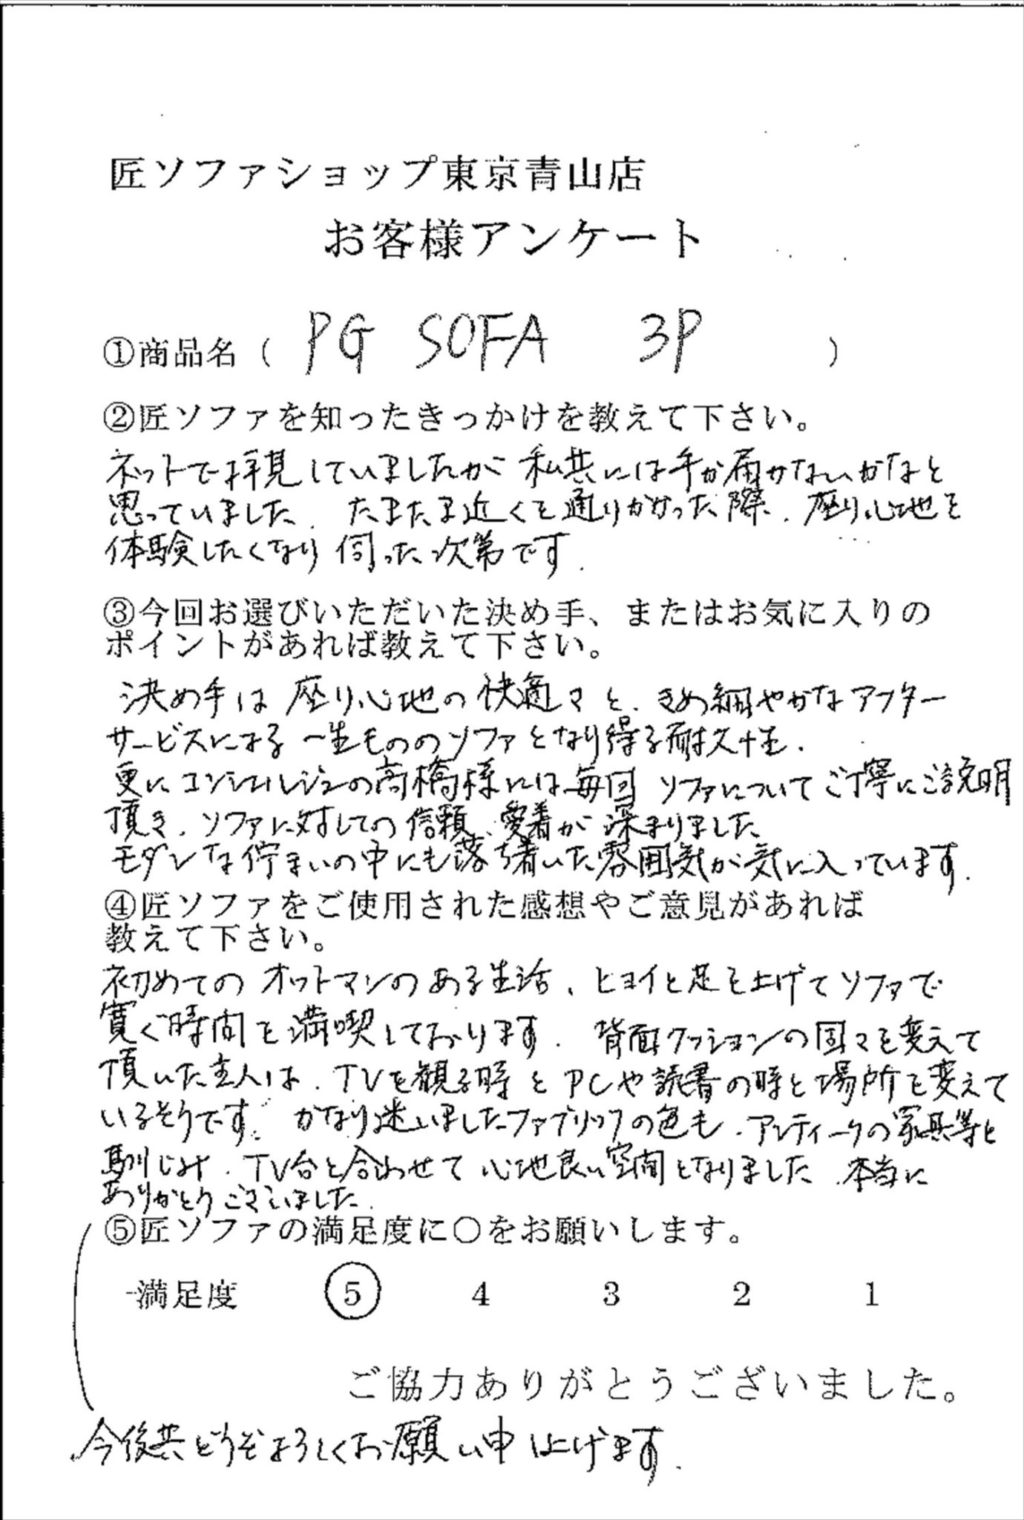 匠ソファショップ東京青山店
お客様アンケート
①商品名（ PG SOFA 3P ）
②匠ソファを知ったきっかけを教えて下さい。
ネットで拝見していましたが 私共には手が届かないかなと
思っていました. たまたま近くを通りかかった際. 座り心地を
体験したくなり 伺った次第です.
③今回お選びいただいた決め手、またはお気に入りの
ポイントがあれば教えて下さい。
決め手は 座り心地の快適さと. きめ細やかなアフター
サービスによる 一生もののソファとなり得る耐久性.
更に コンシェルジュの高橋様には 毎回 ソファについて ご丁寧にご説明
頂き. ソファに対しての信頼、愛着が 深まりました
モダンな佇まいの中にも落ち着いた雰囲気が気に入っています.
④匠ソファをご使用された感想やご意見があれば
教えて下さい。
初めての オットマンのある生活、ヒョイと足を上げてソファで
寛ぐ時間を満喫しております. 背面クッションの固さを変えて
頂いた主人は. TVを観る時と PCや読書の時と場所を変えて
いるそうです. かなり迷いましたファブリックの色も. アンティークの家具等と
馴じみ. TV台と合わせて 心地良い空間となりました. 本当に
ありがとうございました.
⑤匠ソファの満足度に〇をお願いします。
満足度 5 4 3 2 1
ご協力ありがとうございました。
今後共どうぞよろしくお願い申し上げます.